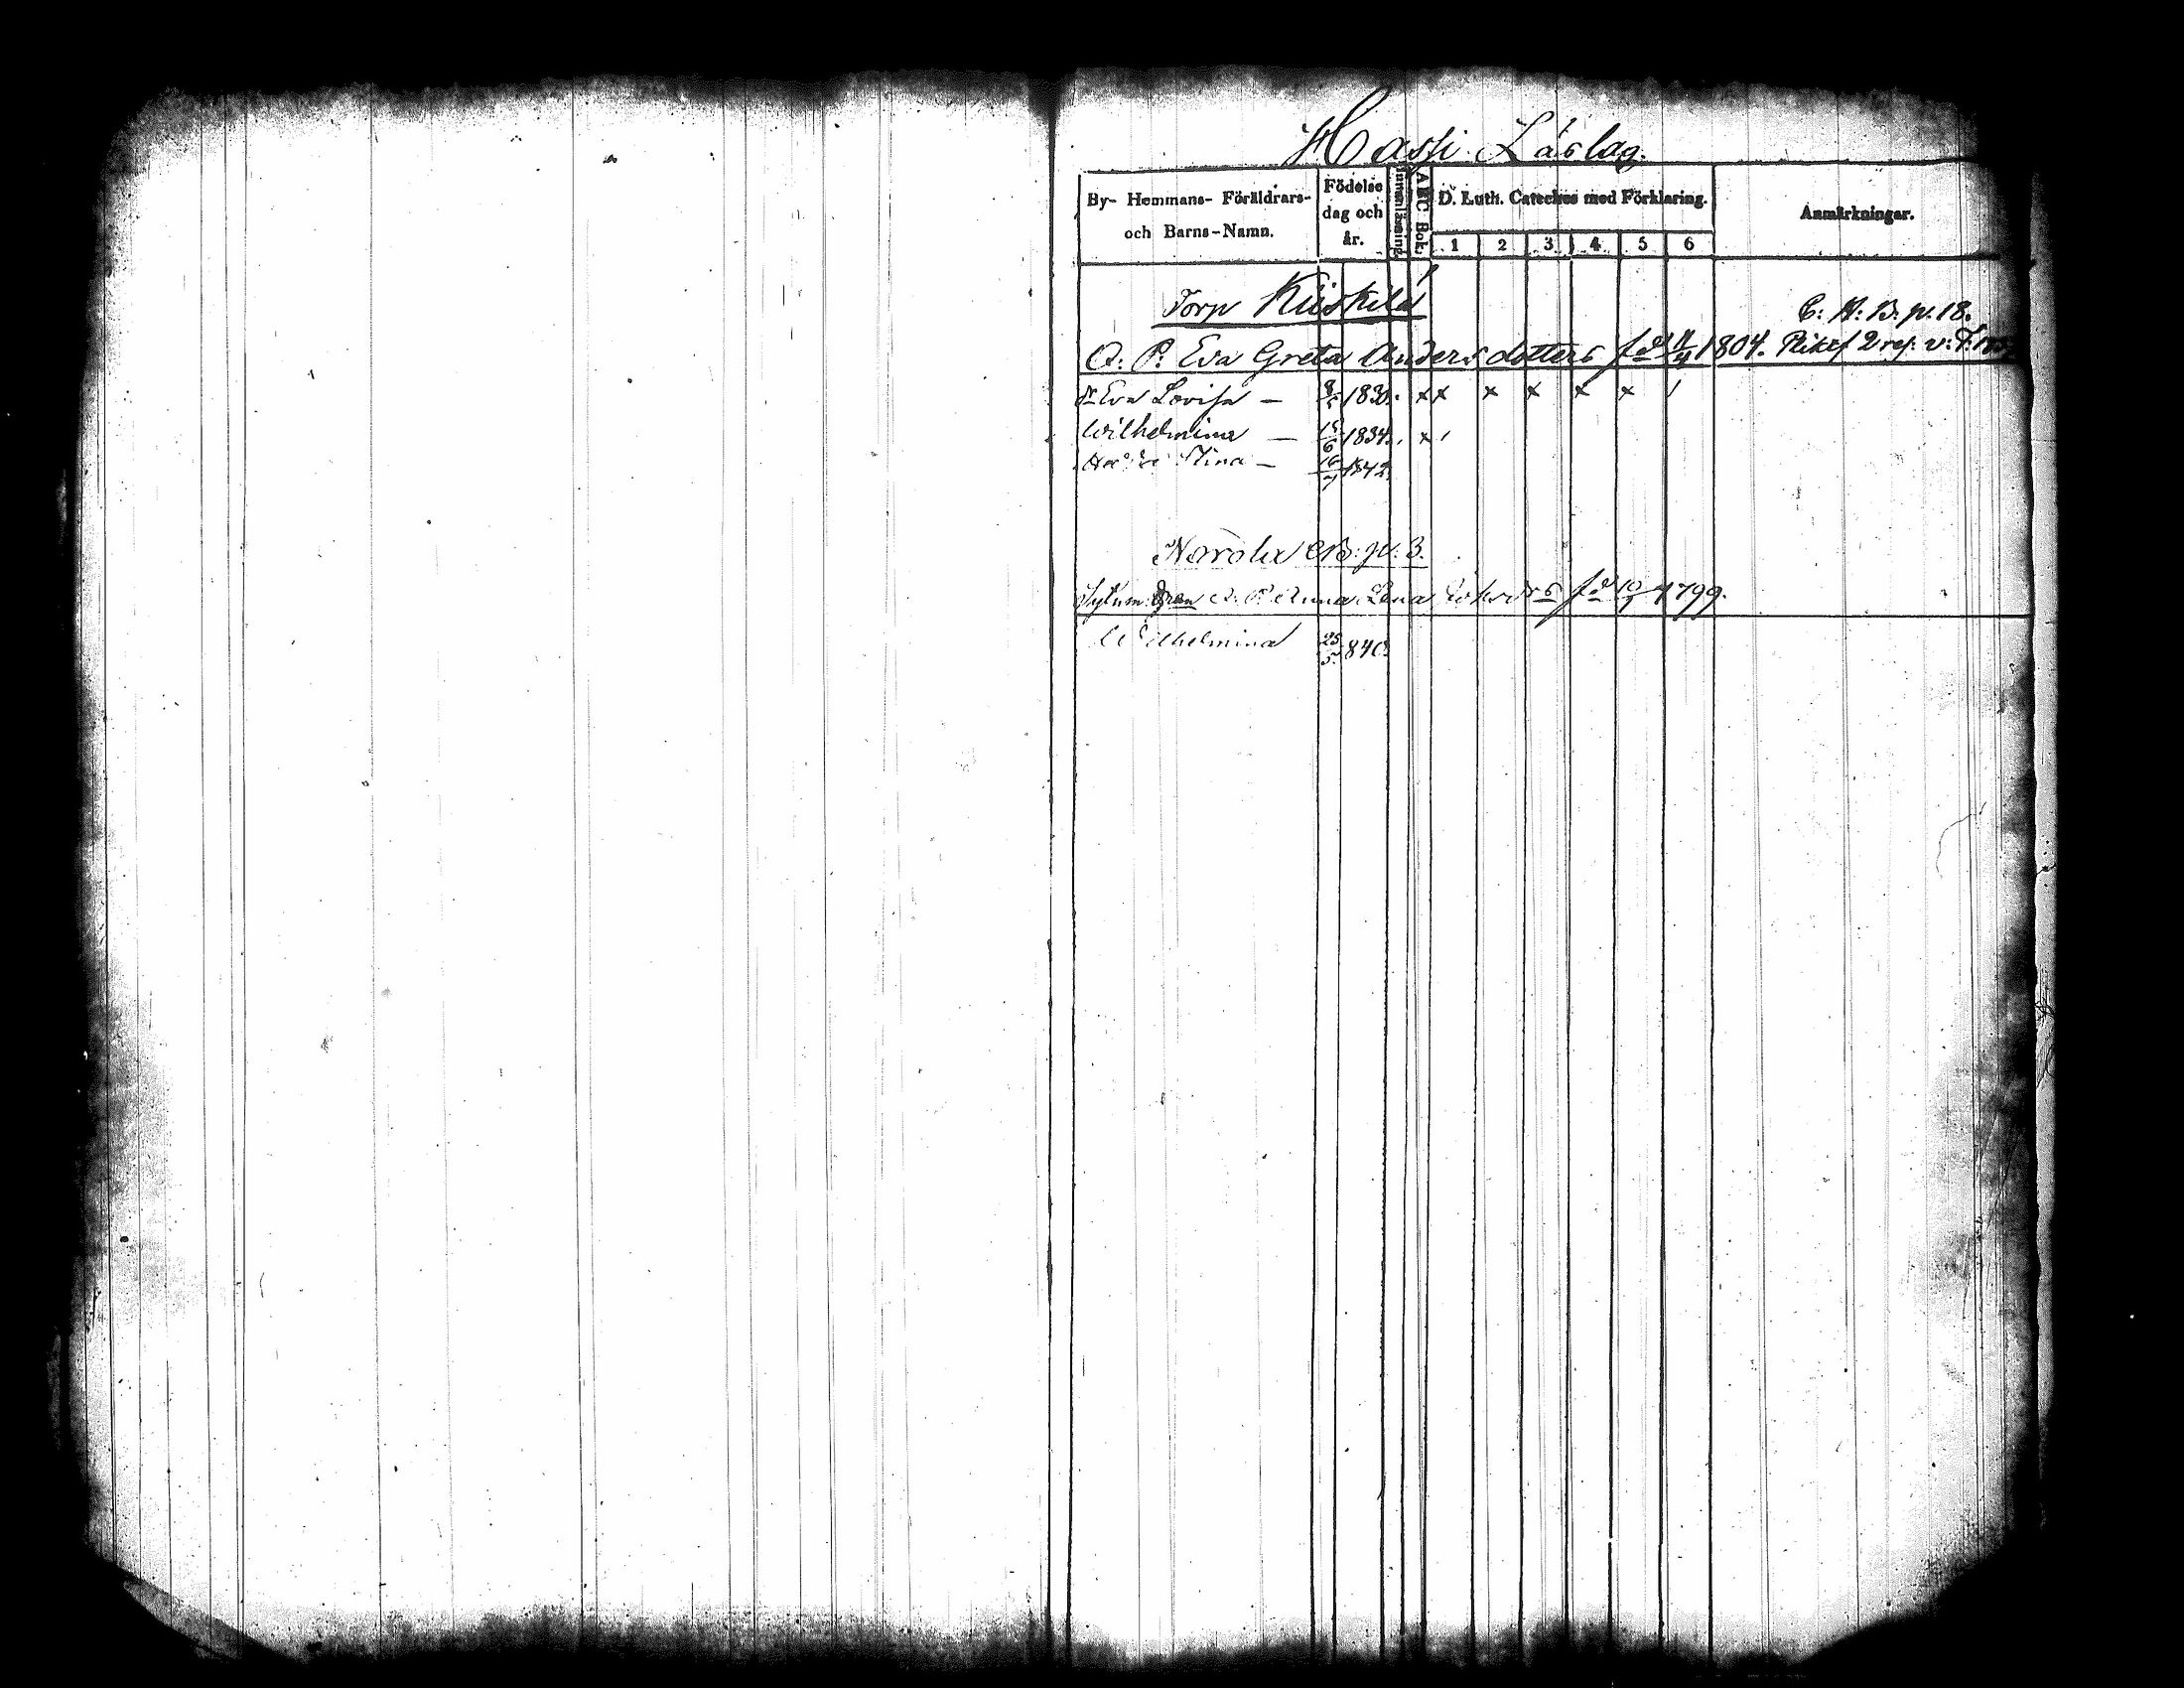 Hassi Läslag.
By- Hemmans- Föräldrars- och Barns-Namn.
Födelse dag och år.
Innanläsning.
ABC Bok.
D. Luth. Cateches med Förklaring.
1 2 3 4 5 6
Anmärkningar.
Torp Kiiskilä
C: A: B: p. 18.
Q: P: Eva Greta Andersdotters fd 11/4 1804.
Eva Lovisa — 8/5 1830. x x x x x x
Wilhelmina — 15/6 1834. x
Stina — 16/7 1842.
Narola CB: p: 3.
Q: P. Anna Lena fd 10/7 1799.
Wilhelmina 25/5 840.